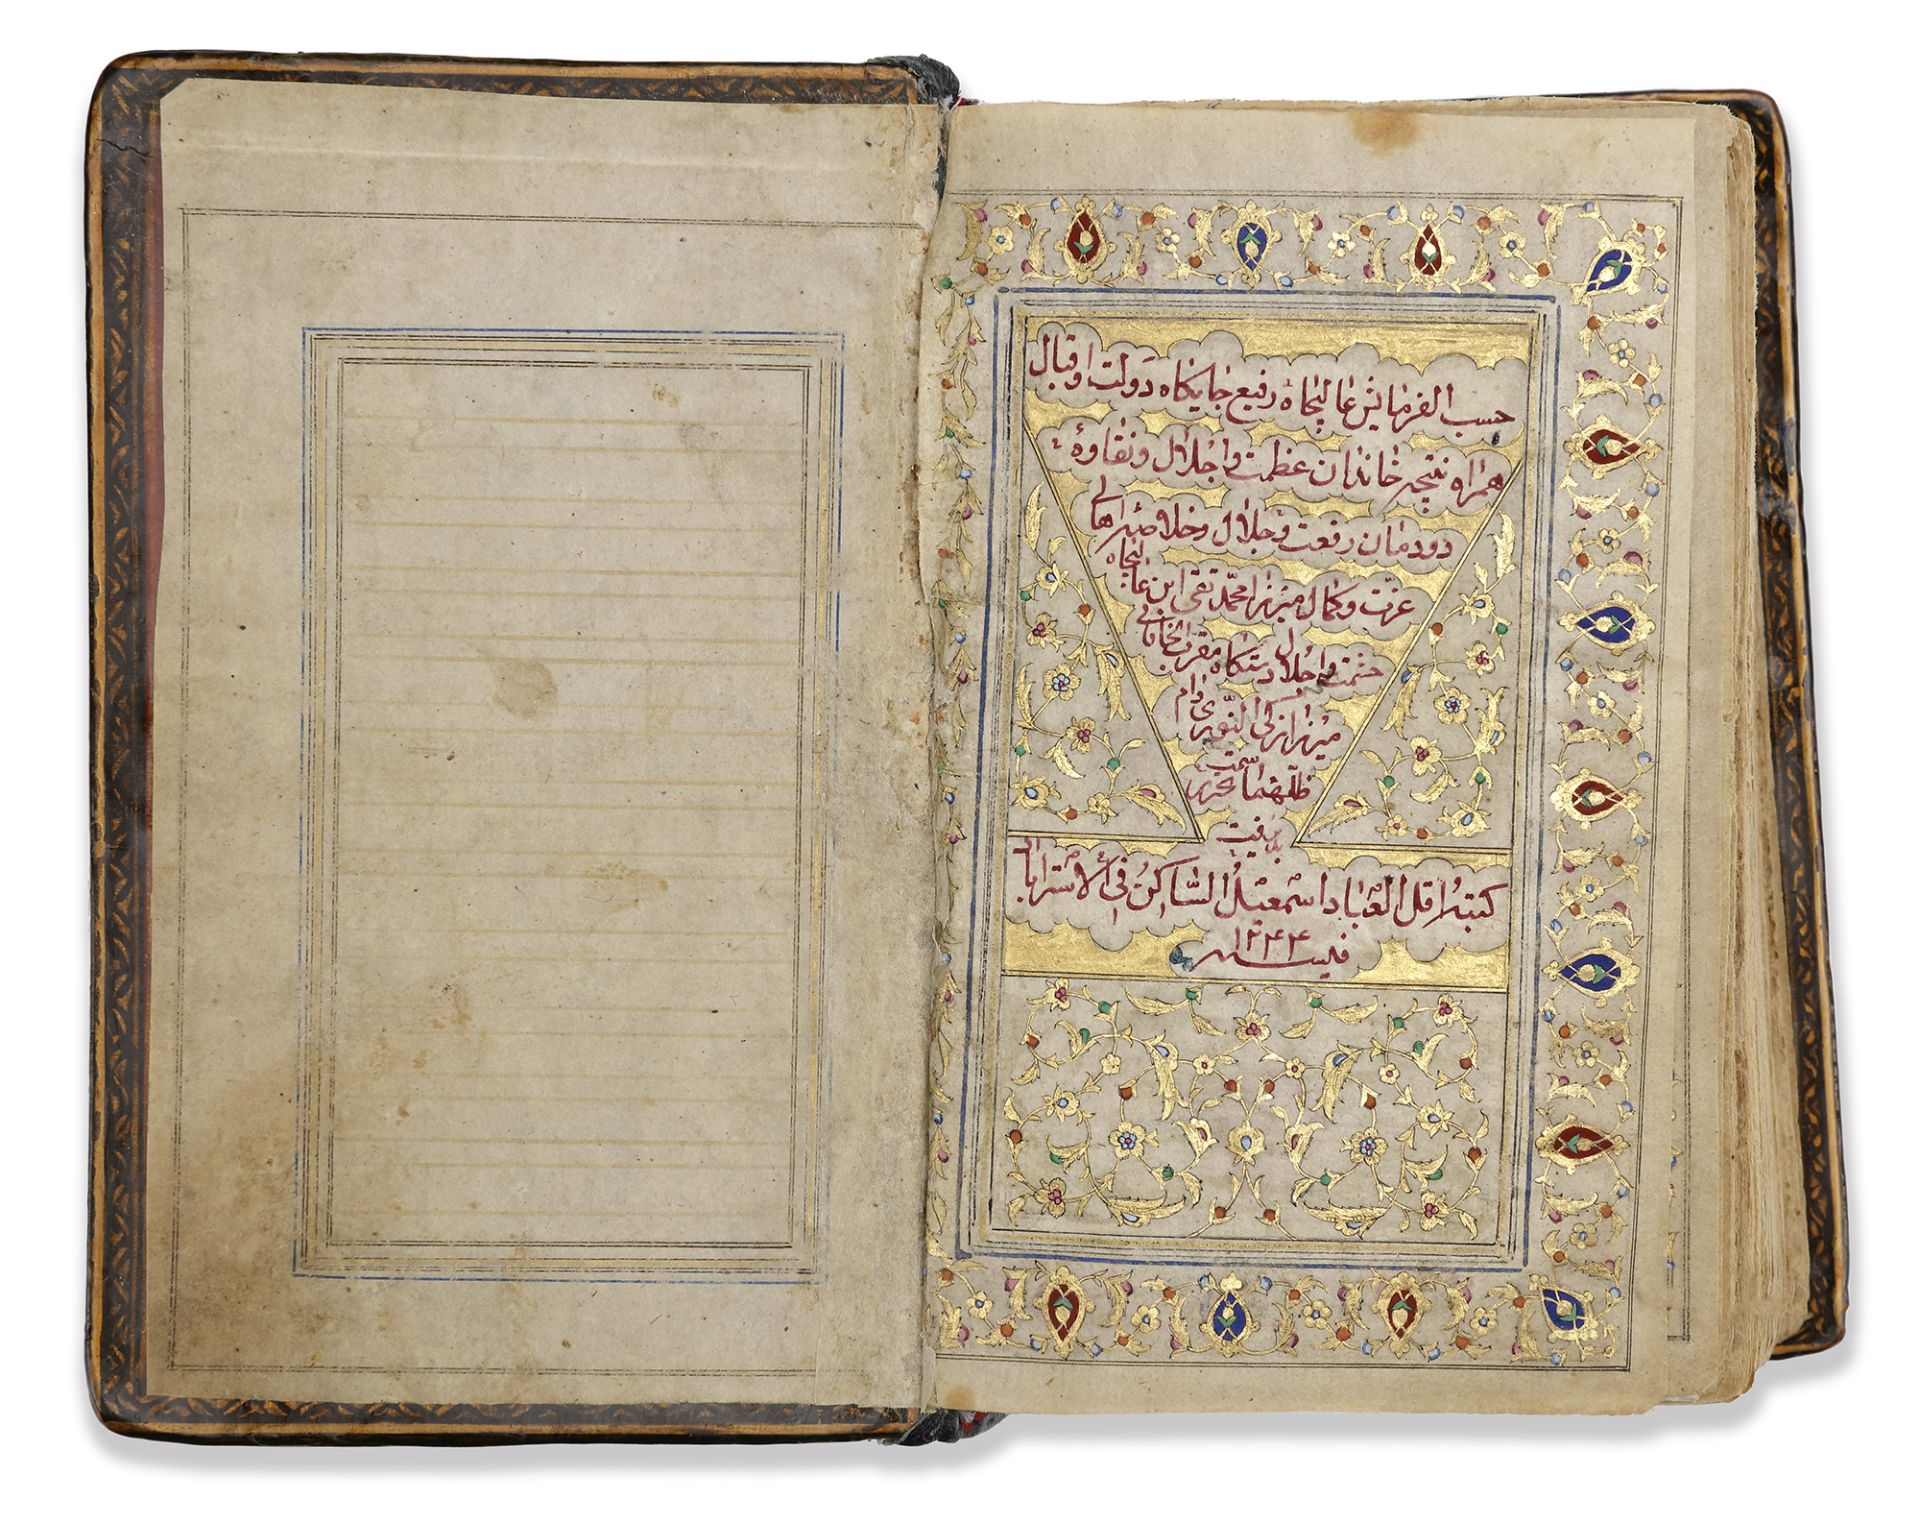 حسب الفرمایش عالیجاه رفیع جایکاه دولت و اقبال
همراه و نتیجه خاندان عظمت و اجلال و نقاوهٔ
دودمان رفعت و جلال و خلاصه اهالی
عزت و کمال میرزا محمّد تقی ابن عالیجاه
حشمت و اجلال دستکاه مقرب الخاقانی
میرزا زکی النّوری دام
ظلّهما سمت تحریر
پذیرفت
کتبه اقل العباد اسمعیل السّاکن فی الاستراباد
فی سنه ۱۲۴۴